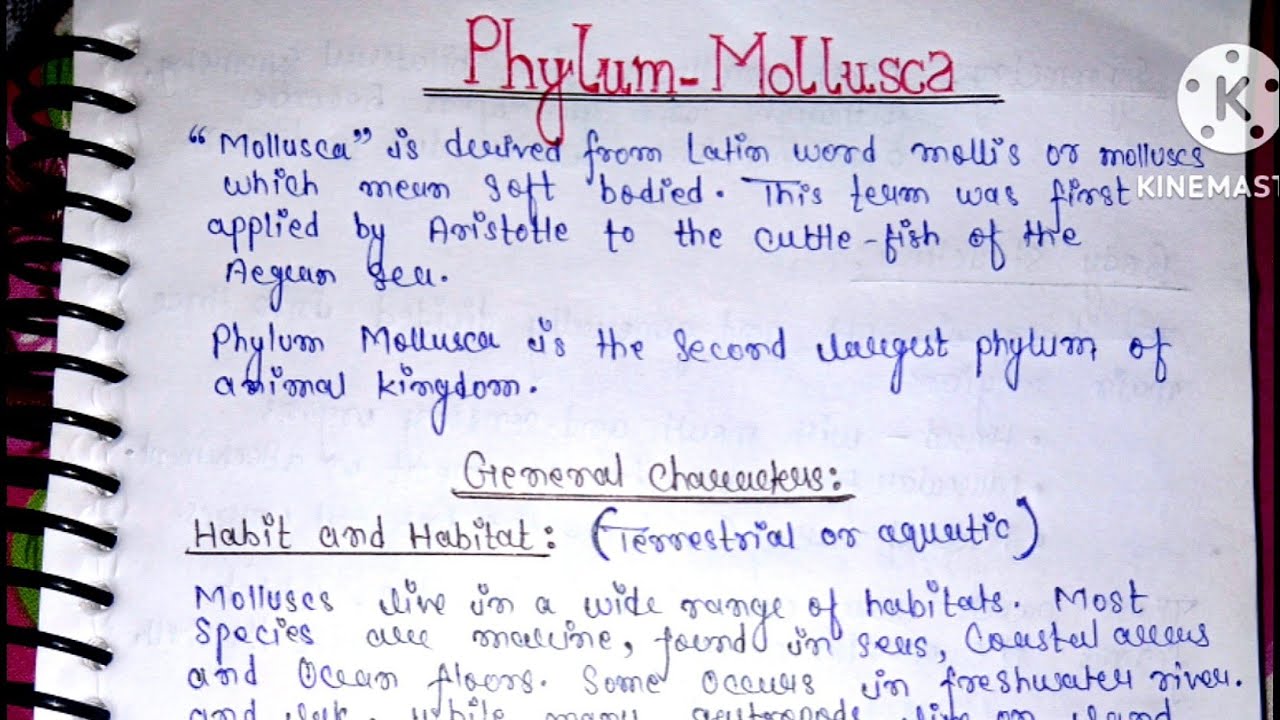 Phylum-Mollusca
"Mollusca" is derived from Latin word mollis or molluscs
which mean soft bodied. This team was first
applied by Aristotle to the cuttle-fish of the
Aegean sea.
Phylum Mollusca is the second largest phylum of
animal kingdom.
General Characters:
Habit and Habitat: (Terrestrial or aquatic)
Molluscs live in a wide range of habitats. Most
species are marine, found in seas, Coastal areas
and Ocean floors. Some occurs in freshwater river.
and while many gastropods live on land
K
KINEMAST